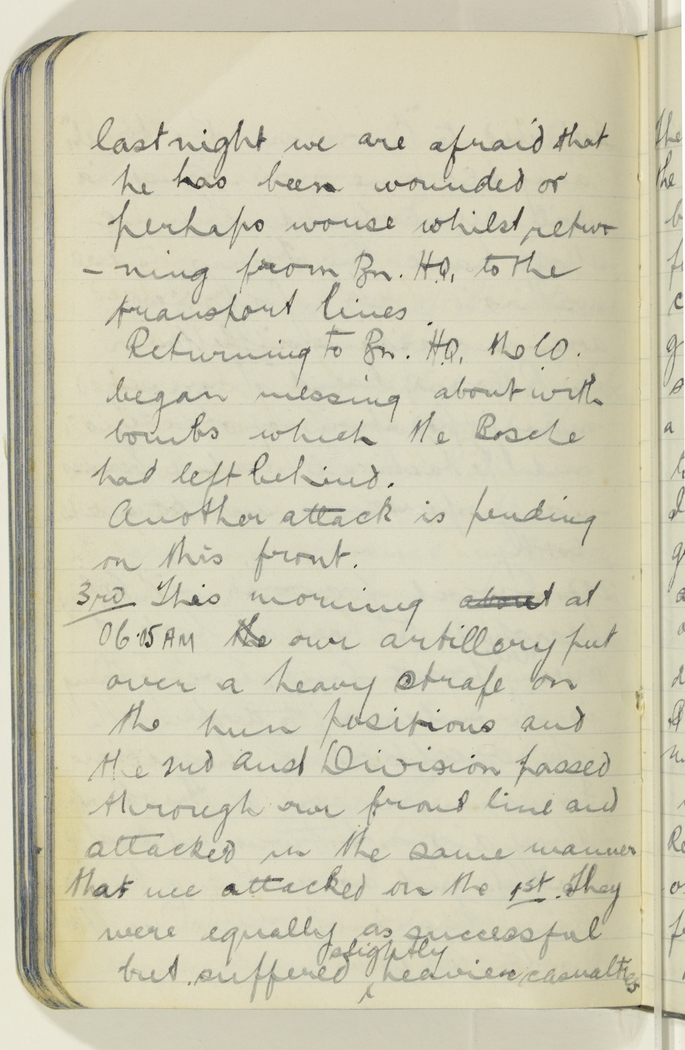 last night we are afraid that
he has been wounded or
perhaps wouse whilst retur
- ning from Bn. H.Q. to the
transport lines.
Returning to Bn. H.Q. the CO.
began messing about with
bombs which the Bosche
had left behind.
Another attack is pending
on this front.
3rd This morning about at
06.05 AM the our artillery put
over a heavy strafe on
the hun positions and
the 2nd Aust Division passed
through our front line and
attacked in the same manner
that we attacked on the 1st. They
were equally as successful
slightly
but suffered heavier casualties